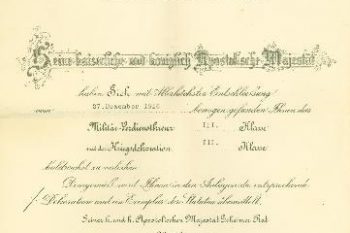 Seine kaiserliche und königlich Apostolische Majestät
haben Sich mit Allerhöchster Entschließung
vom 27.Dezember 1916 bewogen gefunden Ihnen das
Militär-Verdienstkreuz III. Klasse
mit der Kriegsdekoration III. Klasse
huldreichst zu verleihen
Demgemäß wird Ihnen in den Anlagen die entsprechende
Dekoration und ein Exemplar der Statuten übermittelt.
Seiner k. und k. Apostolischen Majestät Geheimer Rat